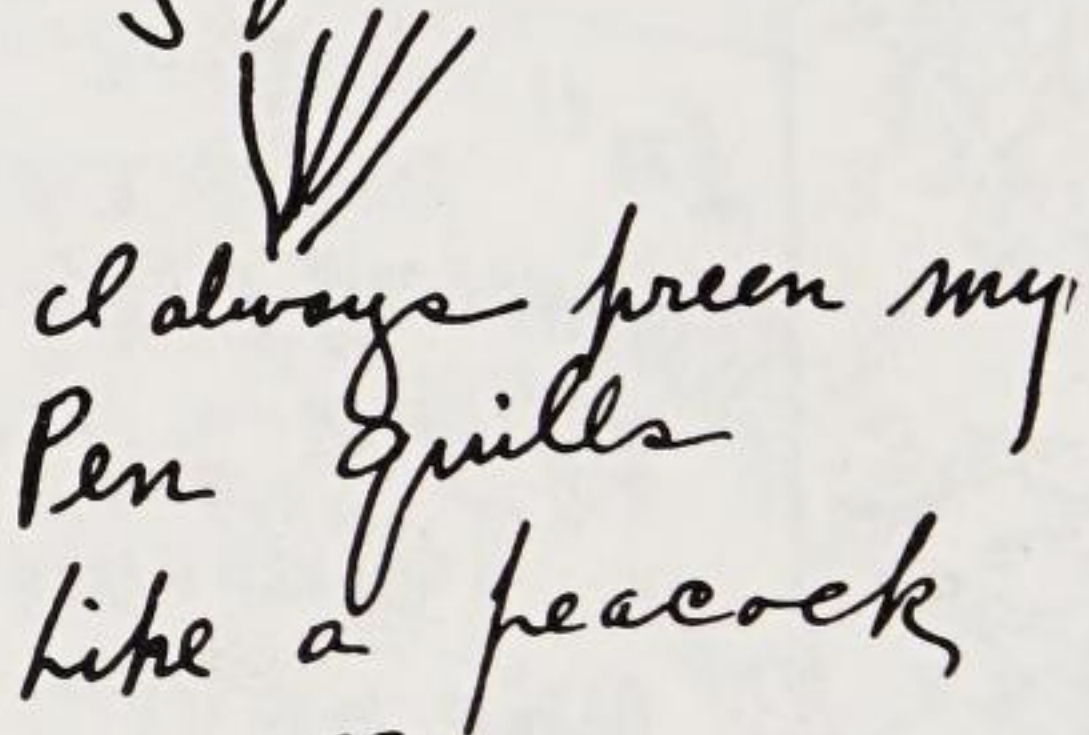 I always preen my
Pen Quills
Like a peacock